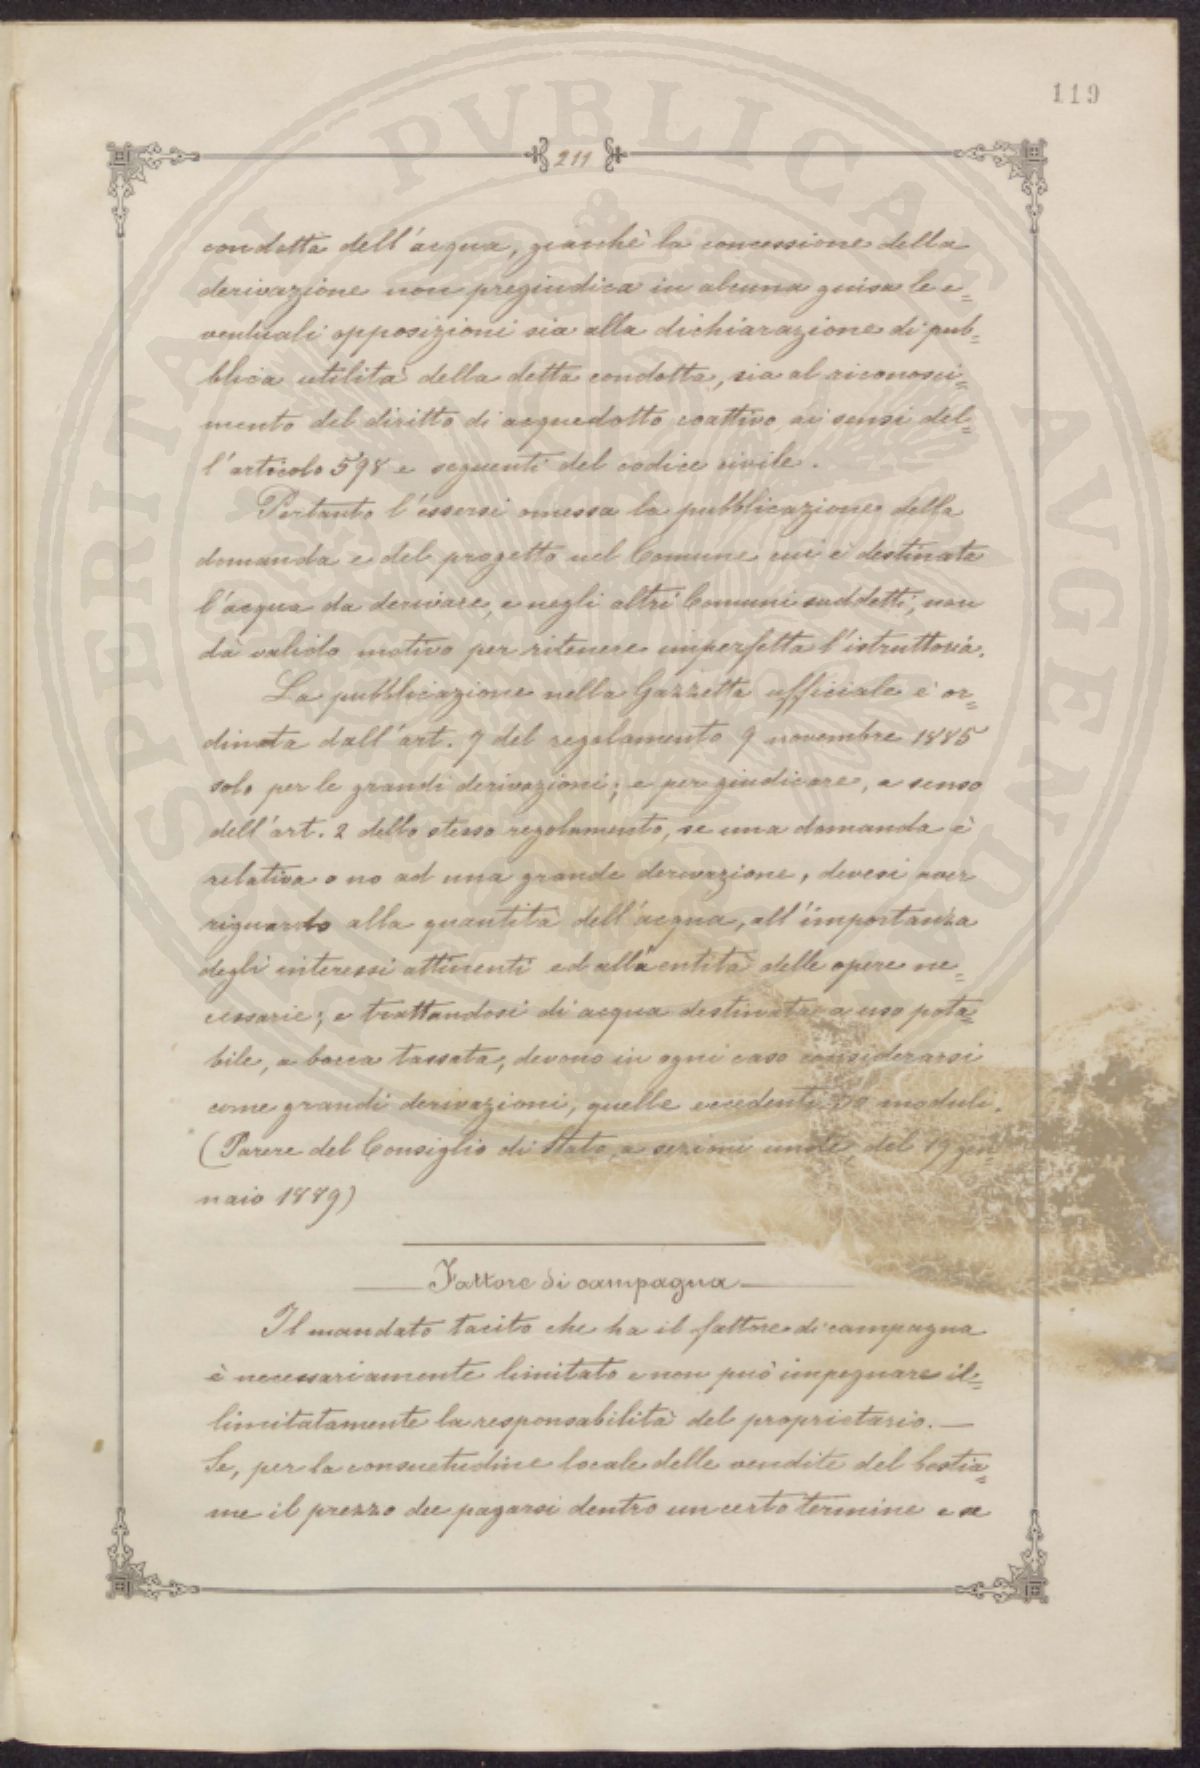 119
211
condotta dell'acqua, giacchè la concessione della
derivazione non pregiudica in alcuna guisa le e=
ventuali opposizioni sia alla dichiarazione di pub=
blica utilità della detta condotta, sia al riconosci=
mento del diritto di acquedotto coattivo ai sensi del=
l'articolo 598 e seguenti del codice civile.
Pertanto l'essersi omessa la pubblicazione della
domanda e del progetto nel Comune cui è destinata
l'acqua da derivare, e negli altri Comuni suddetti, non
dà valido motivo per ritenere imperfetta l'istruttoria.
La pubblicazione nella Gazzetta ufficiale è or=
dinata dall'art. 9 del regolamento 9 novembre 1885
solo per le grandi derivazioni; e per giudicare, a senso
dell'art. 2 dello stesso regolamento, se una domanda è
relativa o no ad una grande derivazione, devesi aver
riguardo alla quantità dell'acqua, all'importanza
degli interessi attinenti ed alla entità delle opere ne=
cessarie; e trattandosi di acqua destinata a uso pota=
bile, a bocca tassata, devono in ogni caso considerarsi
come grandi derivazioni, quelle eccedenti moduli.
(Parere del Consiglio di Stato, a sezioni unite, del 19 gen=
naio 1889)
Fattore di campagna
Il mandato tacito che ha il fattore di campagna
è necessariamente limitato e non può impegnare il=
limitatamente la responsabilità del proprietario. —
Se, per la consuetudine locale delle vendite del bestia=
me il prezzo dee pagarsi dentro un certo termine e se
PROSPERITATI PVBLICAE AVGENDAE